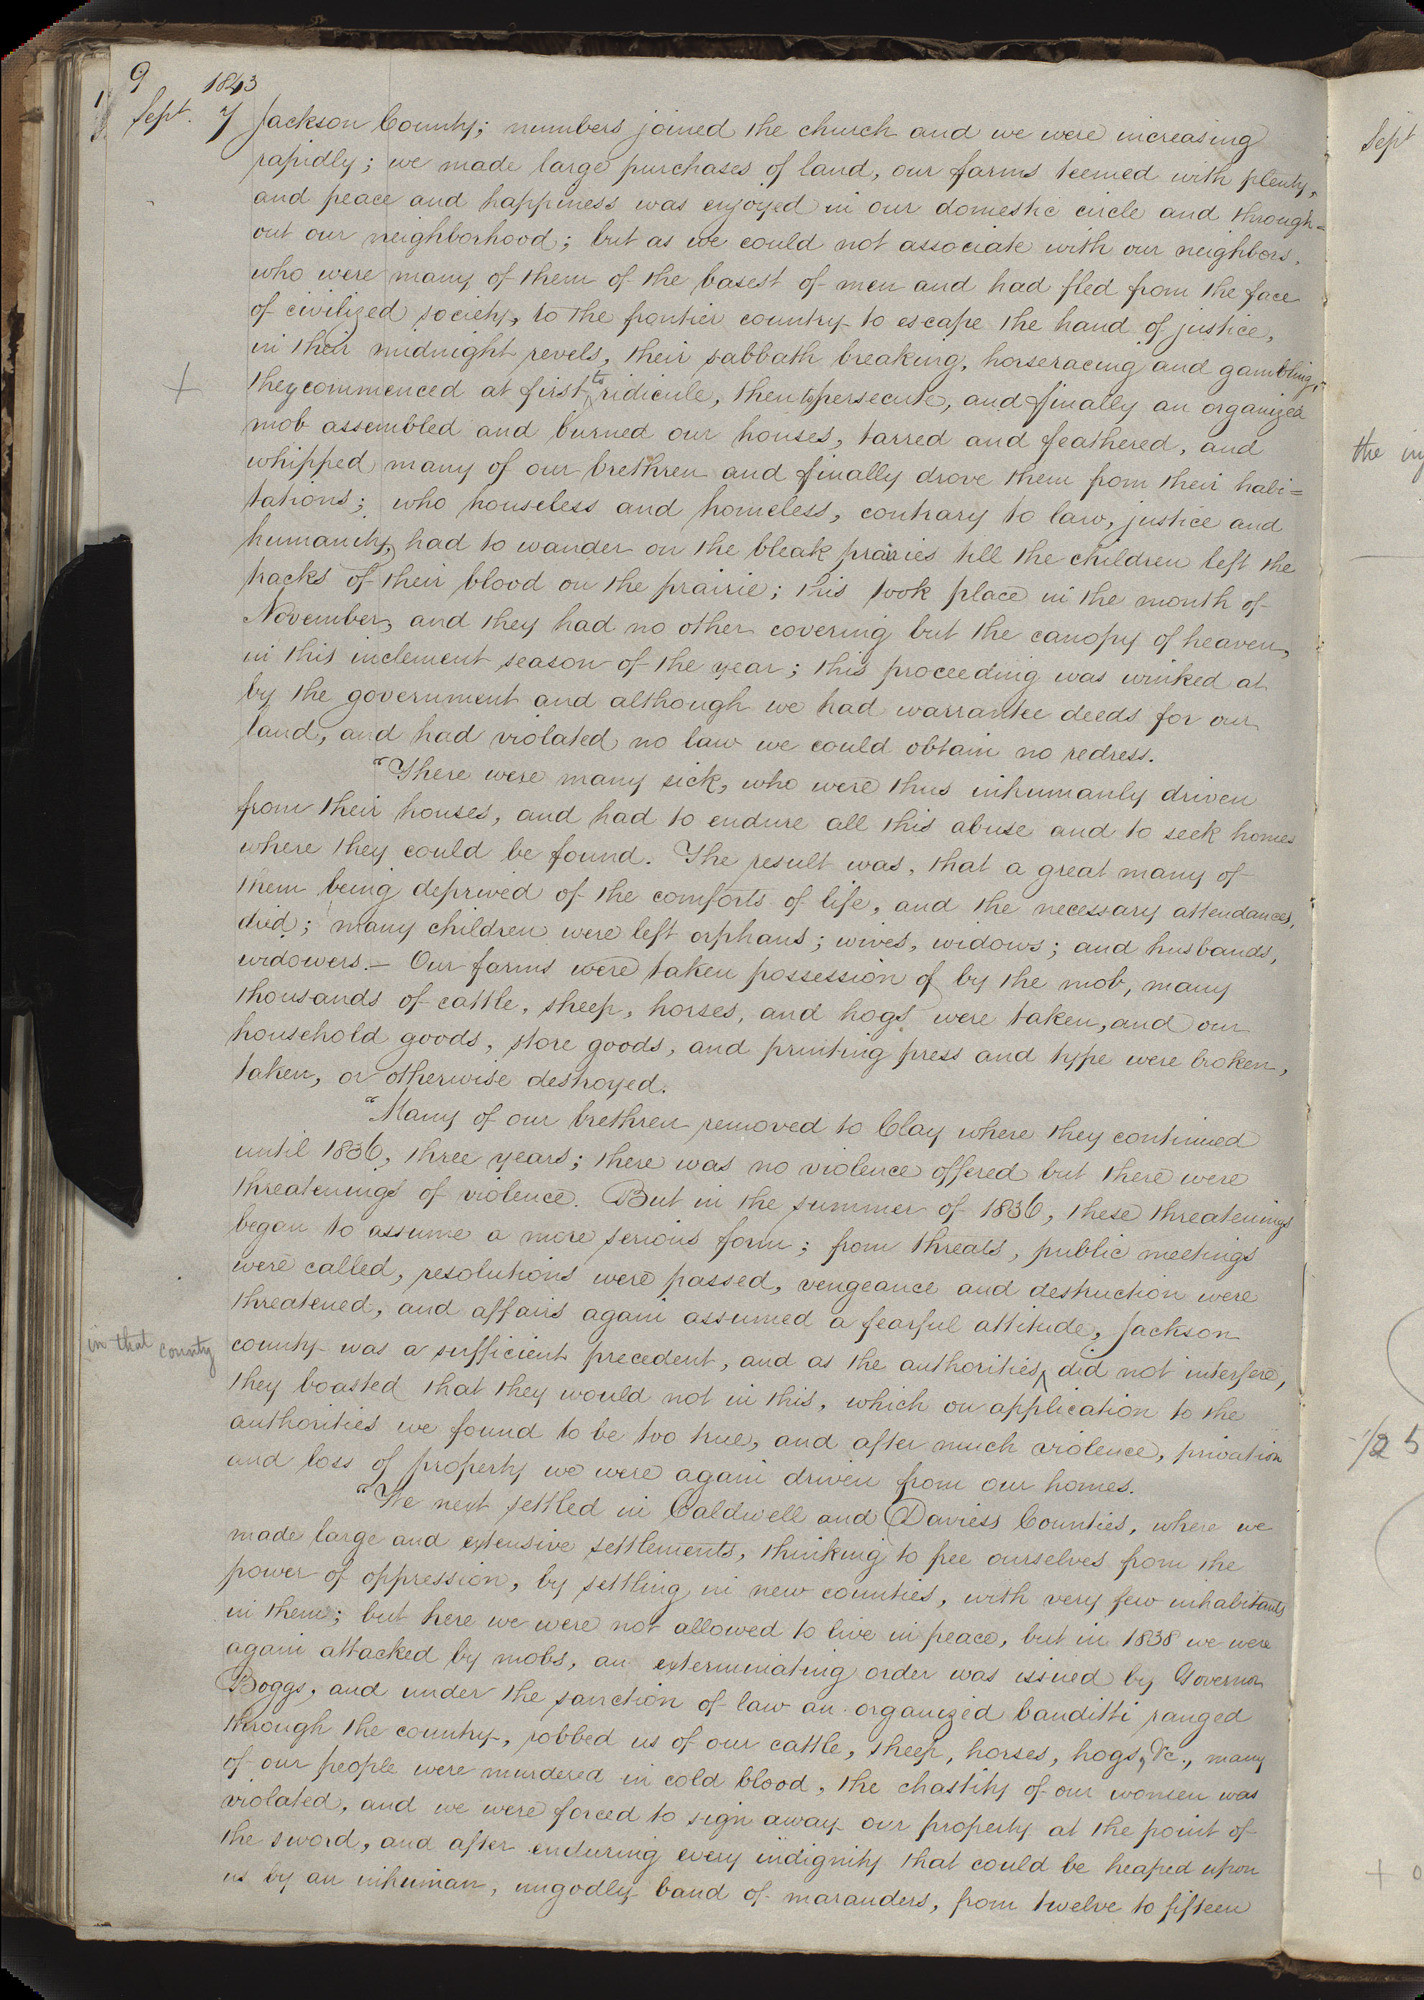 9
1843
Sept. 7 Jackson County; numbers joined the church and we were increasing
rapidly; we made large purchases of land, our farms teemed with plenty,
and peace and happiness was enjoyed in our domestic circle and through=
out our neighborhood; but as we could not associate with our neighbors,
who were many of them of the basest of men and had fled from the face
of civilized society, to the frontier country to escape the hand of justice,
in their midnight revels, their sabbath breaking, horseracing and gambling,
+ they commenced at first to ridicule, then to persecute, and finally an organized
mob assembled and burned our houses, tarred and feathered, and
whipped many of our brethren and finally drove them from their habi=
tations; who houseless and homeless, contrary to law, justice and
humanity, had to wander on the bleak prairies till the children left the
tracks of their blood on the prairie; this took place in the month of
November, and they had no other covering but the canopy of heaven,
in this inclement season of the year; this proceeding was winked at
by the government and although we had warrantee deeds for our
land, and had violated no law we could obtain no redress.
"There were many sick, who were thus inhumanly driven
from their houses, and had to endure all this abuse and to seek homes
where they could be found. The result was, that a great many of
them being deprived of the comforts of life, and the necessary attendances,
died; many children were left orphans; wives, widows; and husbands,
widowers.— Our farms were taken possession of by the mob, many
thousands of cattle, sheep, horses, and hogs were taken, and our
household goods, store goods, and printing press and type were broken,
taken, or otherwise destroyed.
"Many of our brethren removed to Clay where they continued
until 1836, three years; there was no violence offered but there were
threatenings of violence. But in the summer of 1836, these threatenings
began to assume a more serious form; from threats, public meetings
were called, resolutions were passed, vengeance and destruction were
threatened, and affairs again assumed a fearful attitude, Jackson
in that county
county was a sufficient precedent, and as the authorities did not interfere,
they boasted that they would not in this, which on application to the
authorities we found to be too true, and after much violence, privation
and loss of property we were again driven from our homes.
"We next settled in Caldwell and Daviess Counties, where we
made large and extensive settlements, thinking to free ourselves from the
power of oppression, by settling in new counties, with very few inhabitants
in them; but here we were not allowed to live in peace, but in 1838 we were
again attacked by mobs, an exterminating order was issued by Governor
Boggs, and under the sanction of law an organized banditti ranged
through the country, robbed us of our cattle, sheep, horses, hogs, &c., many
of our people were murdered in cold blood, the chastity of our women was
violated, and we were forced to sign away our property at the point of
the sword, and after enduring every indignity that could be heaped upon
us by an inhuman, ungodly band of marauders, from twelve to fifteen
Sept
the
125
+